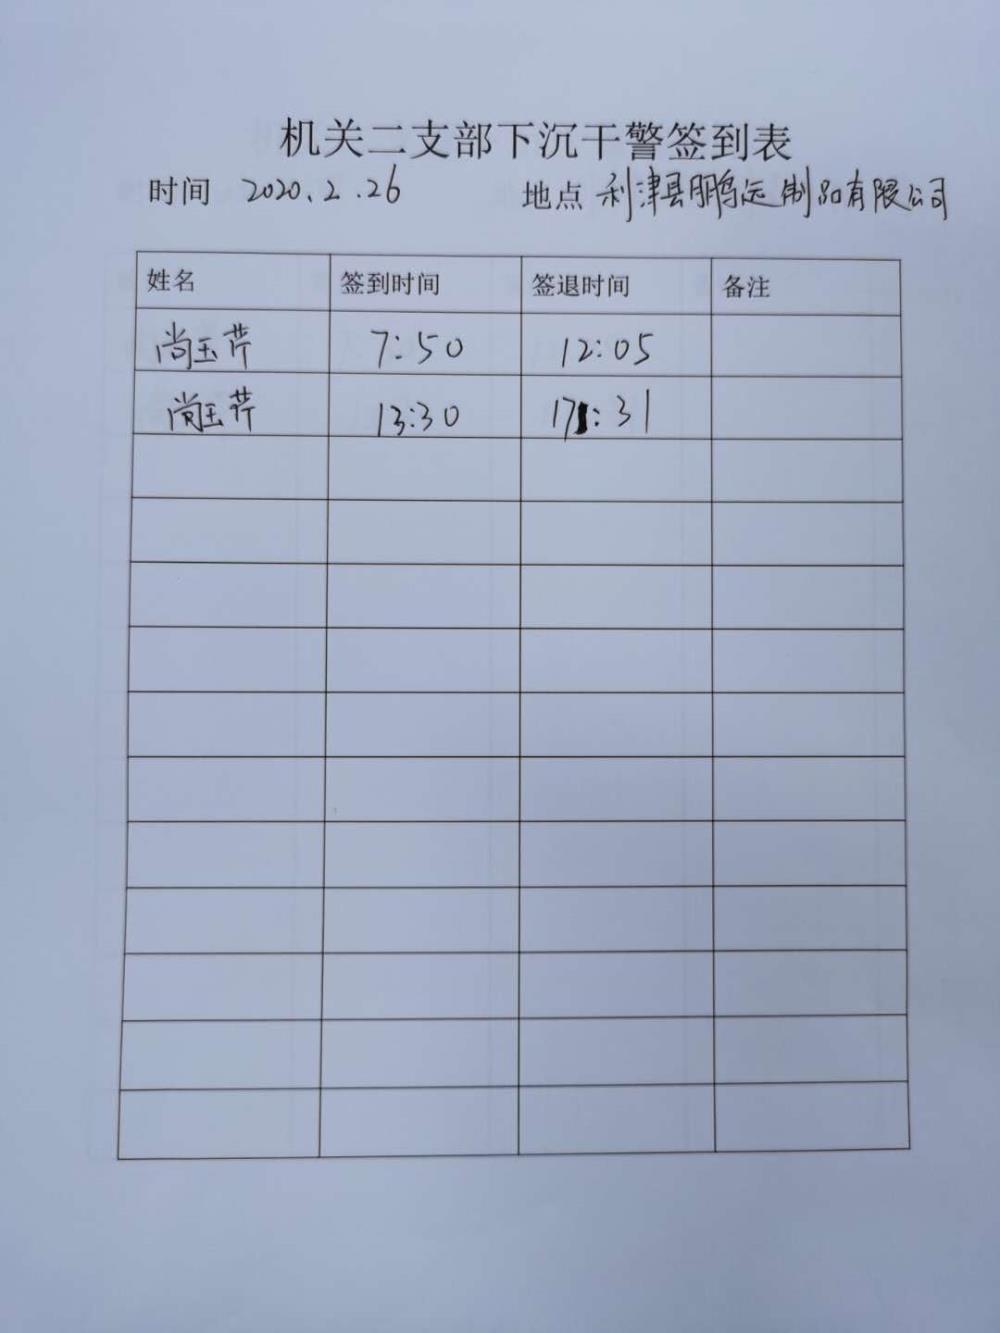 机关二支部下沉干警签到表
时间 2020.2.26 地点 利津县鹏运制品有限公司
姓名 签到时间 签退时间 备注
尚玉芹 7:50 12:05
尚玉芹 13:30 17:31